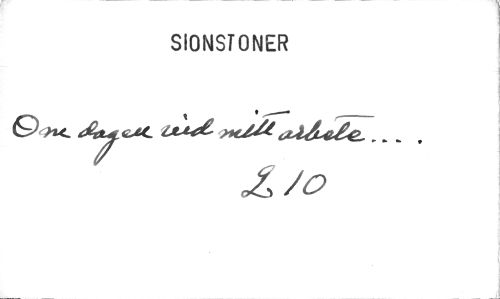 SIONSTONER
Om dagen vid mitt arbete....
L 10